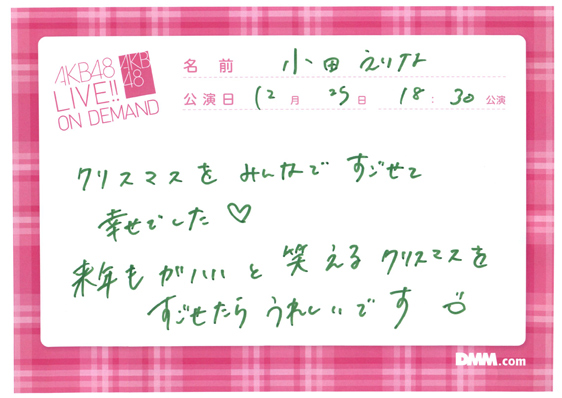 AKB48
LIVE!!
ON DEMAND
AKB
48
名前 小田えりな
公演日 12月 25日 18:30公演
クリスマスをみんなですごせて
幸せでした♡
来年もガハハハと笑えるクリスマスを
すごせたらうれしいです
DMM.com